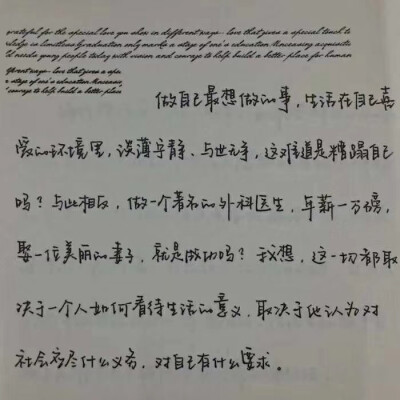 grateful for the special love you show in different ways - love that gives a special touch to
is limitless Graduation only marks a stage of one's education Increasing exquisite
needs young people today with vision and courage to help build a better place for human
different ways - love that gives a spe
a stage of one's education Increasin
courage to help build a better place
做自己最想做的事，生活在自己喜
爱的环境里，淡薄宁静、与世无争，这难道是糟蹋自己
吗？与此相反，做一个著名的外科医生，年薪一万磅，
娶一位美丽的妻子，就是成功吗？我想，这一切都取
决于一个人如何看待生活的意义，取决于他认为对
社会应尽什么义务，对自己有什么要求。